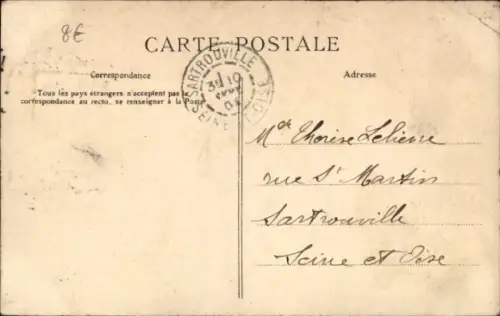 8€
CARTE POSTALE
Correspondance
Tous les pays étrangers n'acceptent pas la
correspondance au recto, se renseigner à la Poste
Adresse
SARTROUVILLE
SEINE
Melle Thérèse Lelievre
rue St Martin
Sartrouville
Seine et Oise